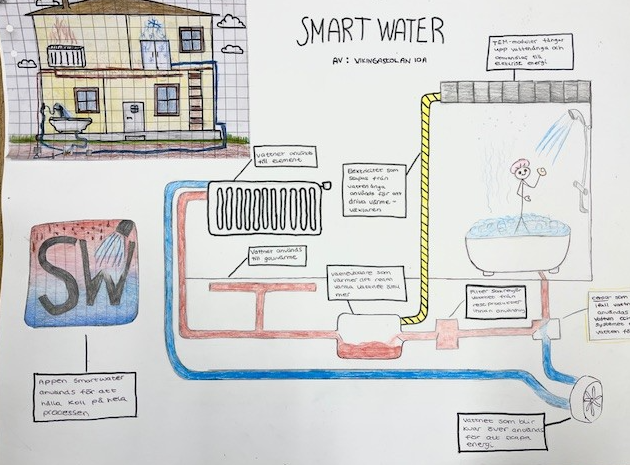 SMART WATER
AV: VIKINGASKOLAN 10A
TEM-moduler fångar
upp vattenånga och
omvandlar till
elektrisk energi
Vattnet används
till element
Elektricitet som
skapas från
vattenånga
används för att
driva värme-
växlaren
SW
Vattnet används
till golvvärme
som
värmer det redan
varma vattnet ännu
mer
Filter
vattnet från
restprodukter
innan
som
ifall
används
vatten och
systemet
vatten
Appen smartwater
används för att
hålla koll på hela
processen
Vattnet som blir
kvar över används
för att skapa
energi